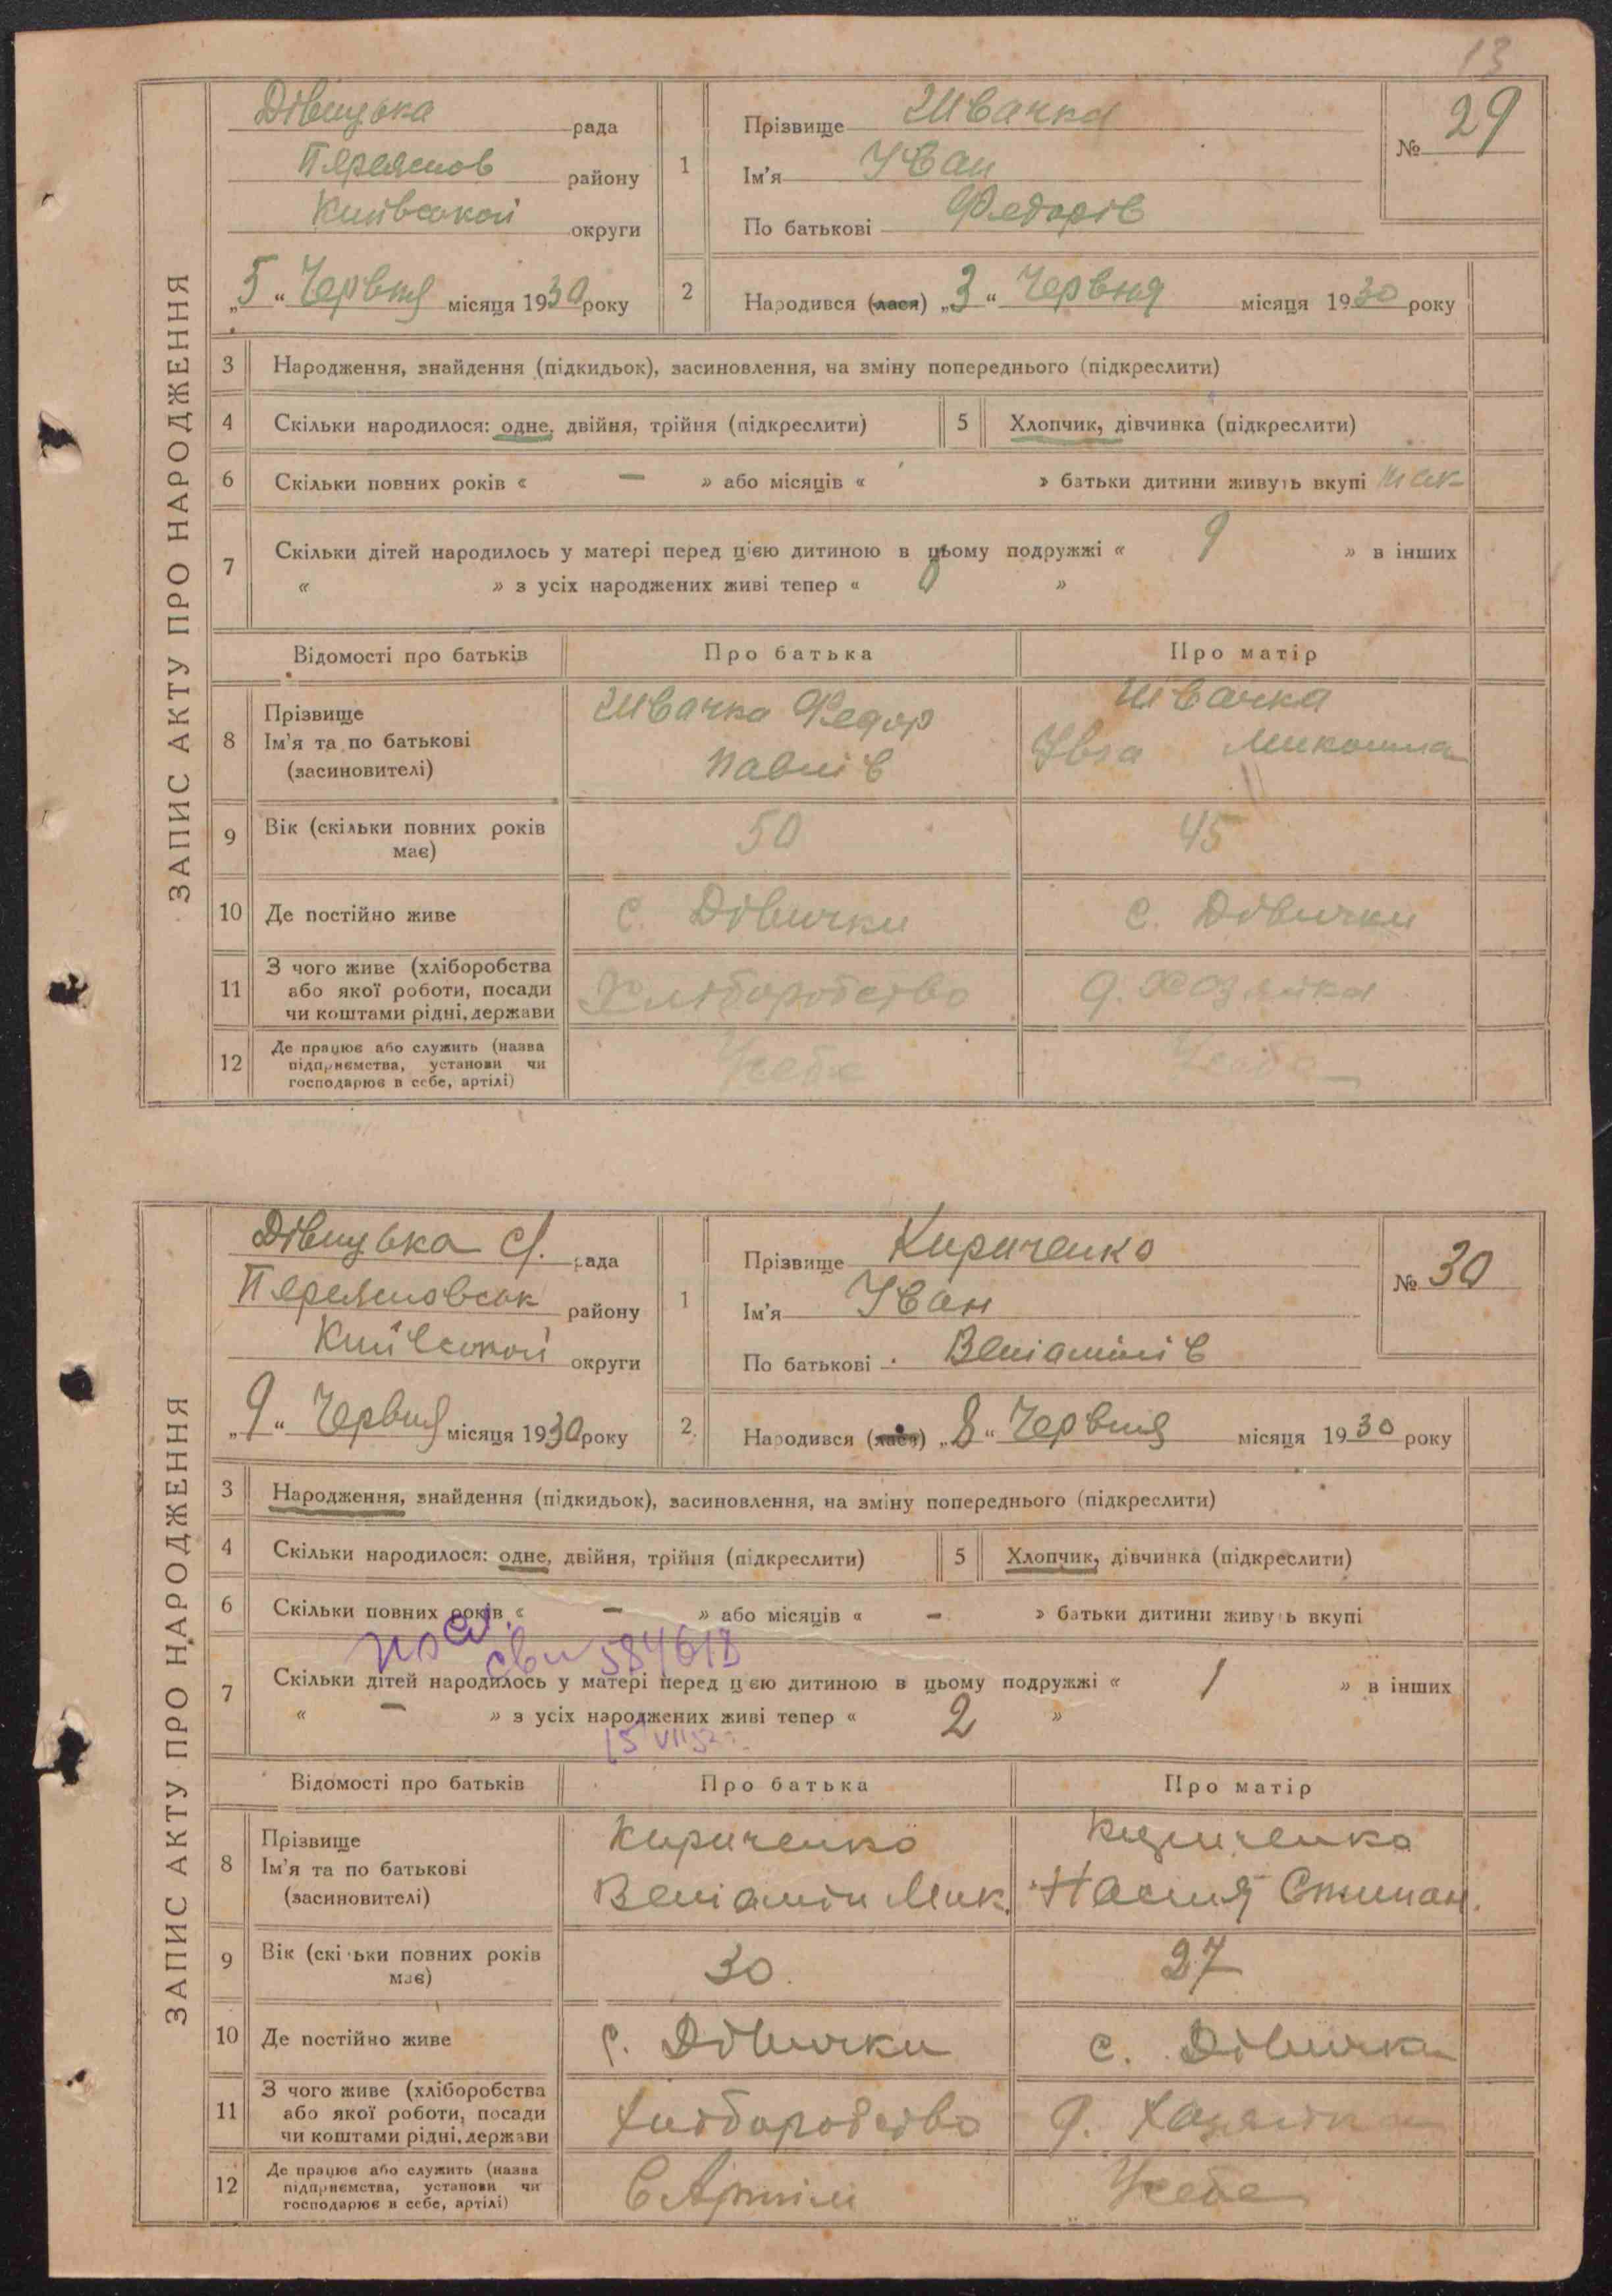 13
ЗАПИС АКТУ ПРО НАРОДЖЕННЯ
Дівицька рада
Переяслов району
Київської округи
„5“ Червня місяця 1930 року
1 Прізвище Швачка
Ім'я Іван
По батькові Федорів
№ 29
2 Народився (лася) „3“ Червня місяця 1930 року
3 Народження, знайдення (підкидьок), засиновлення, на зміну попереднього (підкреслити)
4 Скільки народилося: одне, двійня, трійня (підкреслити) 5 Хлопчик, дівчинка (підкреслити)
6 Скільки повних років « — » або місяців « » батьки дитини живуть вкупі
7 Скільки дітей народилось у матері перед цією дитиною в цьому подружжі « 9 » в інших
« » з усіх народжених живі тепер « »
Відомості про батьків Про батька Про матір
8 Прізвище
Ім'я та по батькові
(засиновителі)
Швачка Федор
Павлів
Швачка
9 Вік (скільки повних років
має)
50 45
10 Де постійно живе с. Дівички с. Дівички
11 З чого живе (хліборобства
або якої роботи, посади
чи коштами рідні, держави
Хліборобство д. Хозяйка
12 Де працює або служить (назва
підприємства, установи чи
господарює в себе, артілі)
Усебе Усебе
ЗАПИС АКТУ ПРО НАРОДЖЕННЯ
Дівицька с/. рада
Переясловськ району
Київської округи
„9“ Червня місяця 1930 року
1 Прізвище Кириченко
Ім'я Іван
По батькові Веніамінів
№ 30
2 Народився (лася) „8“ Червня місяця 1930 року
3 Народження, знайдення (підкидьок), засиновлення, на зміну попереднього (підкреслити)
4 Скільки народилося: одне, двійня, трійня (підкреслити) 5 Хлопчик, дівчинка (підкреслити)
6 Скільки повних років « — » або місяців « — » батьки дитини живуть вкупі
7 Скільки дітей народилось у матері перед цією дитиною в цьому подружжі « 1 » в інших
« — » з усіх народжених живі тепер « 2 »
Відомості про батьків Про батька Про матір
8 Прізвище
Ім'я та по батькові
(засиновителі)
Кириченко
Веніамін Мик.
Кириченко
Настя Степан.
9 Вік (скільки повних років
має)
30. 27
10 Де постійно живе с. Дівички с. Дівички
11 З чого живе (хліборобства
або якої роботи, посади
чи коштами рідні, держави
Хліборобство д. Хазяйка
12 Де працює або служить (назва
підприємства, установи чи
господарює в себе, артілі)
В Артілі Усебе